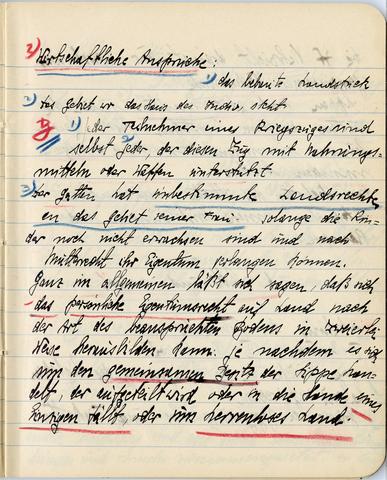 2) Wirtschaftliche Ansprüche:
1) das bebaute Landstück
2) das Gebiet wo das Haus des Indiv. steht
3) 1) der Teilnehmer eines Kriegszuges und
selbst jeder der diesen Zug mit Nahrungs-
mitteln oder Waffen unterstützt
3) der Gatten hat unbestimmte Landsrechte
an das Gebiet seiner Frau solange die Kin-
der noch nicht erwachsen sind und nach
Mutterrecht ihr Eigentum verlangen können.
Ganz im allgemeinen läßt sich sagen, daß sich
das persönliche Eigentumsrecht auf Land nach
der Art des beanspruchten Bodens in zweierlei
Weise herausbilden kann. je nachdem es sich
um den gemeinsamen Besitz der Sippe han-
delt, der aufgeteilt wird oder in die Hände eines
Einzigen fällt, oder um herrenloses Land.